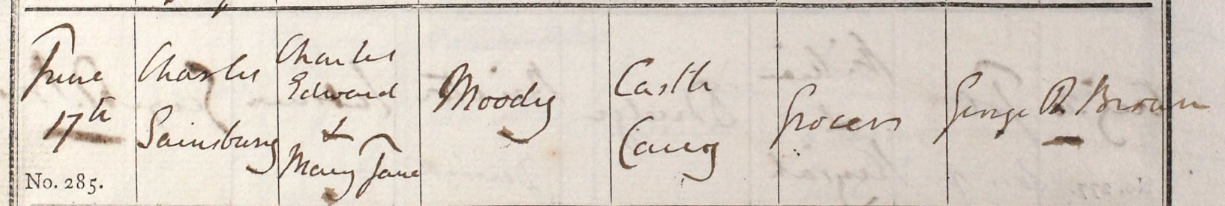 June
17th
No. 285.
Charles
Sainsbury
Charles
Edward
&
Mary Jane
Moody
Castle
Cary
Grocer
George R. Brown